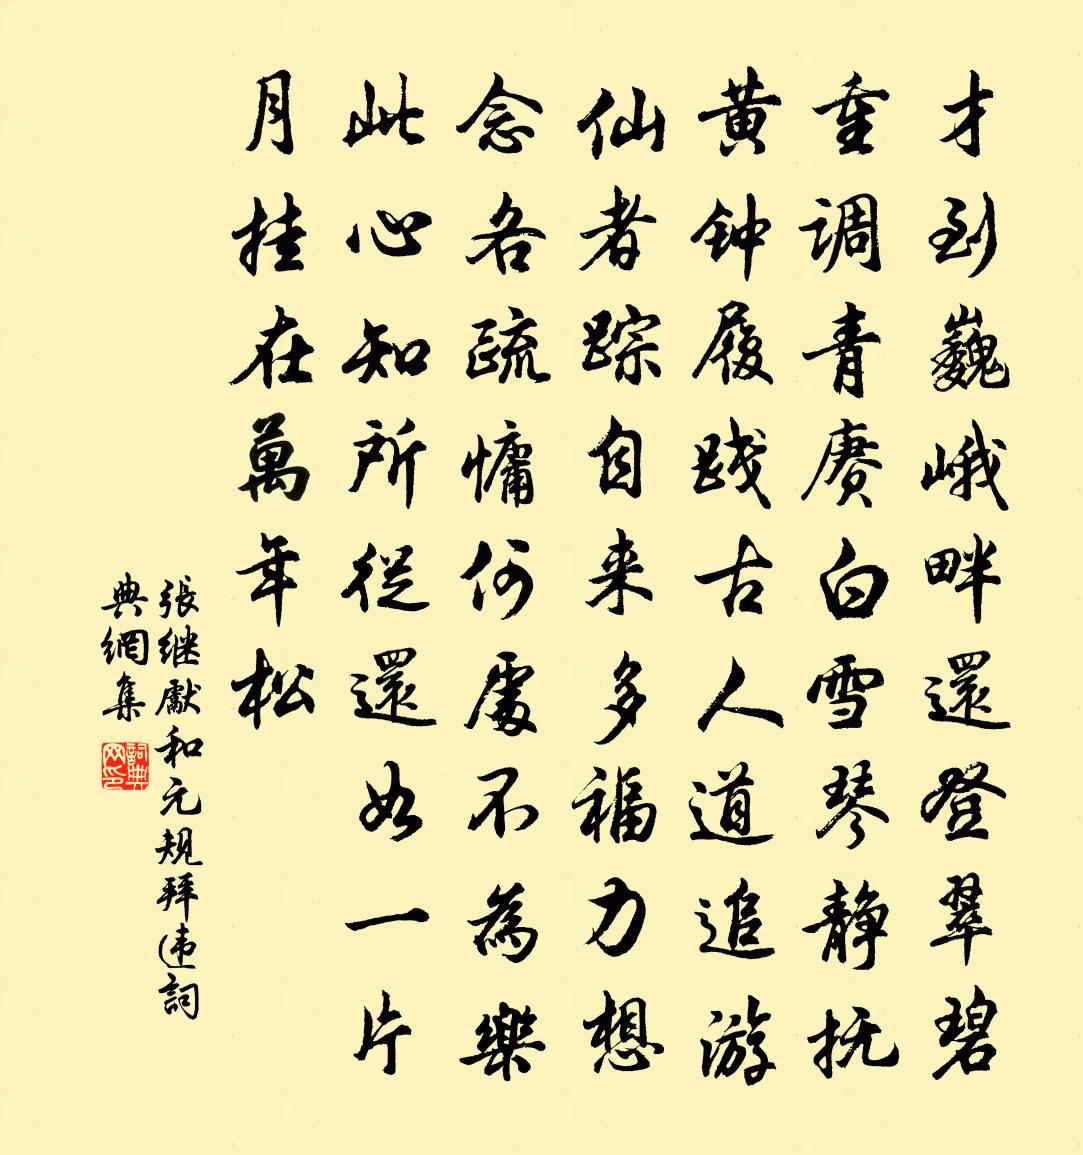 才到巍峨畔還登翠碧
重调青赓白雪琴静抚
黄钟履践古人道追游
仙者踪自来多福力想
念各疏慵何處不為樂
此心知所從還如一片
月挂在萬年松
張继獻和元規拜违詞
典網集
詞典网印